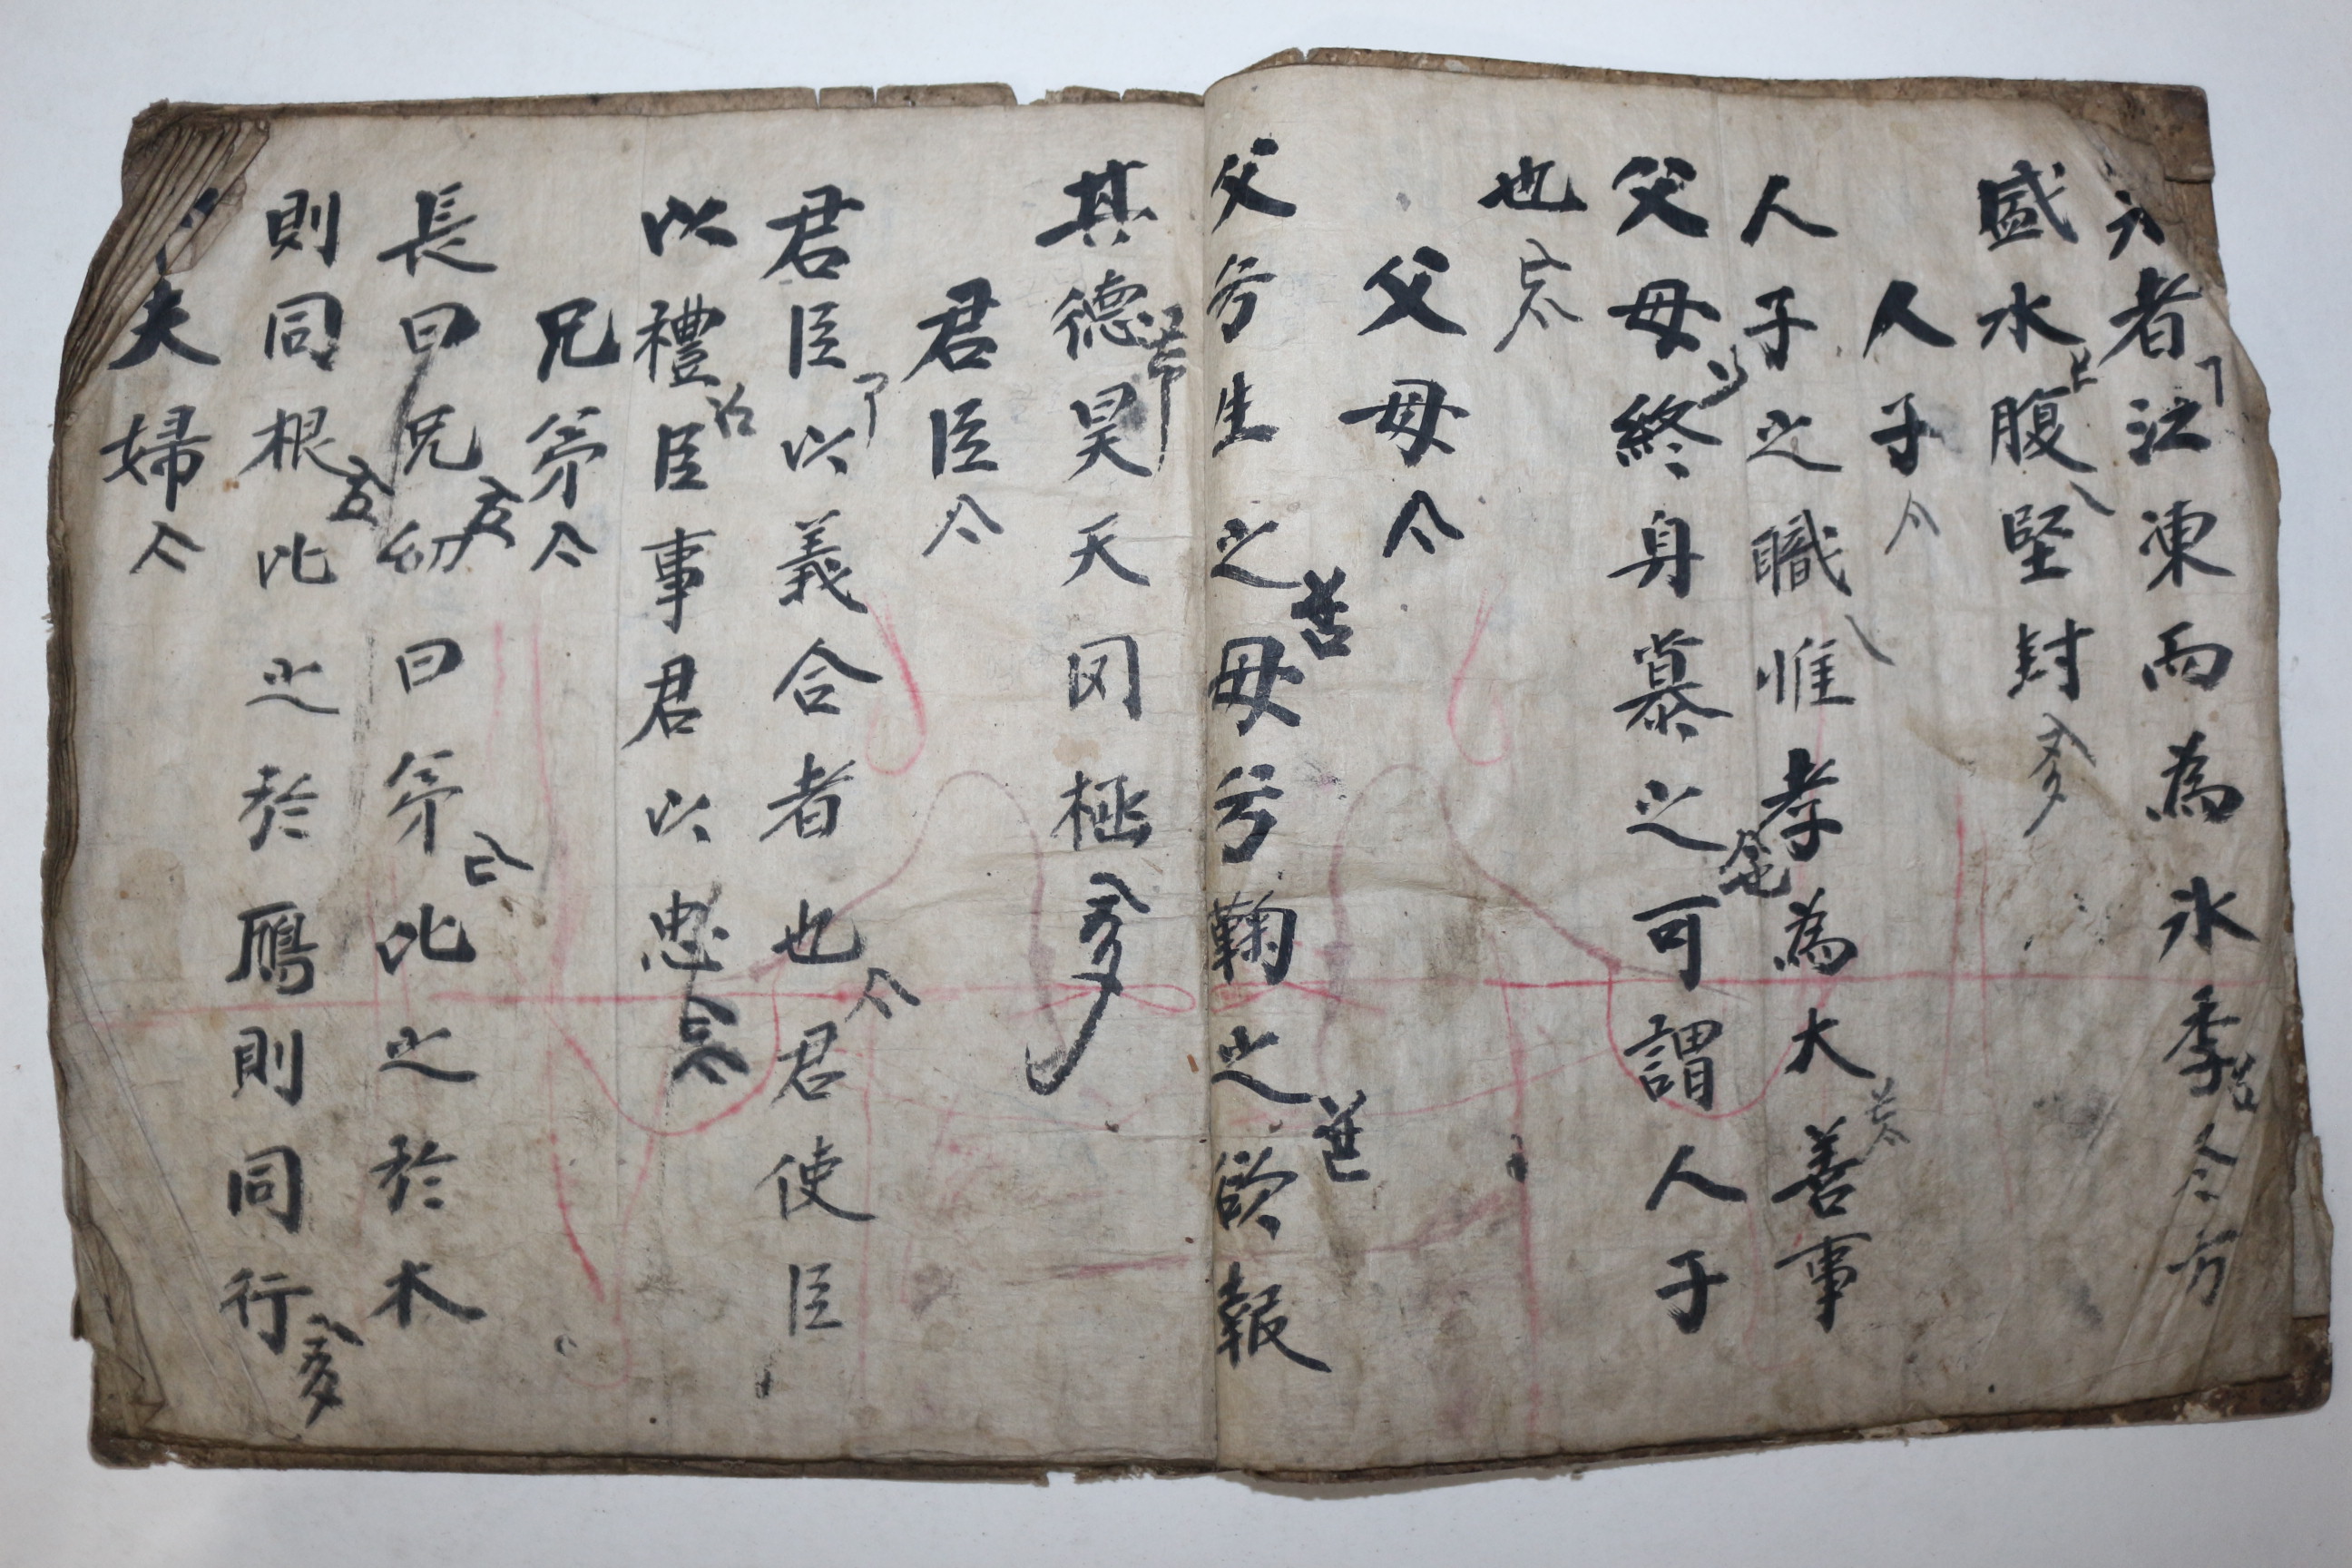 者江凍而為氷季冬方
盛水腹堅封
人子
人子之職惟孝為大善事
父母終身慕之可謂人子
也
父母
父兮生之母兮鞠之欲報
其德昊天罔極
君臣
君臣以義合者也君使臣
以禮臣事君以忠
兄弟
長曰兄幼曰弟比之於木
則同根比之於鴈則同行
夫婦